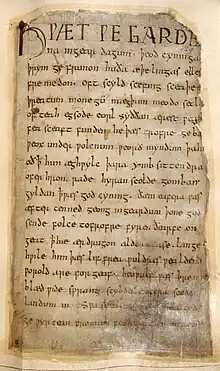 HǷÆT ǷE GARDE
na ingear dagum. þeod cyninga
þrym ge frunon huða æþelingas elle
fre medon. oft scyld scefing sceaþe
þreatum monegū mægþum meodo setla
of teah egsode eorl syððan ærest ƿearð
fea sceaft funden he þæs frofre geba
ƿeox under ƿolcnum ƿeorð myndum þah
oð þ him æghƿylc þara ymb sittendra
ofer hron rade hyran scolde gomban
gyldan þ ƿæs god cyning. ðæm eafera ƿæs
æfter cenned geong ingeardum þone god
sende folce tofrofre fyren ðearfe on
geat þ hie ær drugon aldor ase. lange
hƿile him þæs lif frea ƿuldres ƿealdend
ƿorold are for geaf. beoƿulf ƿæs breme
blæd ƿide sprang scyldes eafera scede
landum in